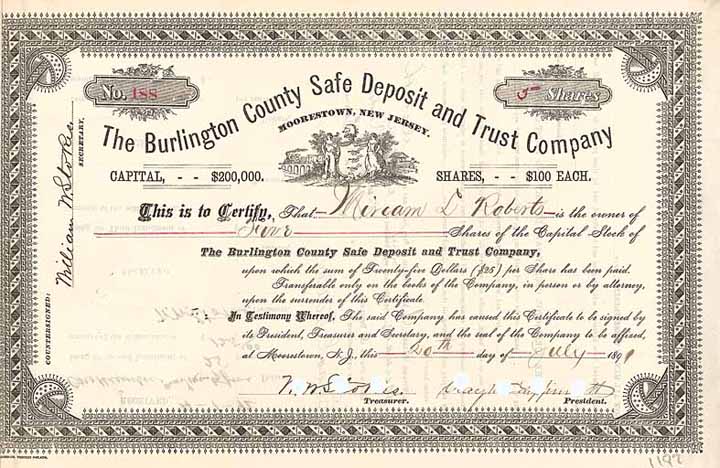 No. 188
5 Shares
The Burlington County Safe Deposit and Trust Company
MOORESTOWN, NEW JERSEY.
CAPITAL, - - $200,000.
SHARES, - - $100 EACH.
This is to Certify, That Miriam L. Roberts is the owner of
Five Shares of the Capital Stock of
The Burlington County Safe Deposit and Trust Company,
upon which the sum of Twenty-five Dollars ($25) per Share has been paid.
Transferable only on the books of the Company, in person or by attorney,
upon the surrender of this Certificate.
In Testimony Whereof, The said Company has caused this Certificate to be signed by
its President, Treasurer and Secretary, and the seal of the Company to be affixed,
at Moorestown, N.J., this 20th day of July 1891
W. W. Stokes.
Treasurer.
President.
COUNTERSIGNED:
William W. Stokes.
SECRETARY.